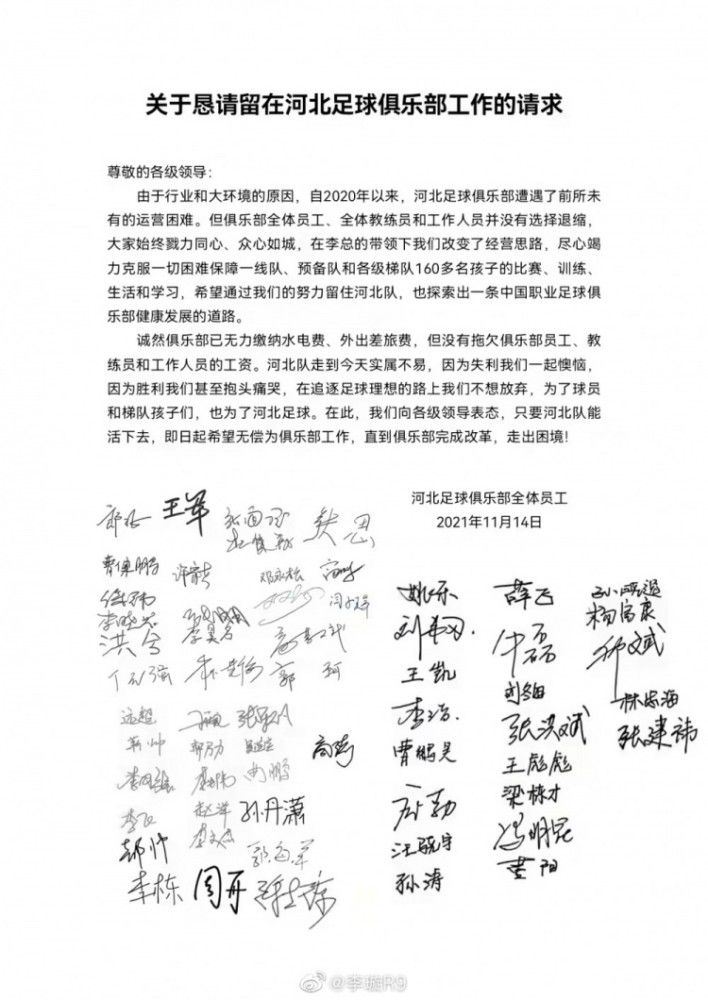 关于恳请留在河北足球俱乐部工作的请求
尊敬的各级领导：
由于行业和大环境的原因，自2020年以来，河北足球俱乐部遭遇了前所未
有的运营困难。但俱乐部全体员工、全体教练员和工作人员并没有选择退缩，
大家始终戮力同心、众心如城，在李总的带领下我们改变了经营思路，尽心竭
力克服一切困难保障一线队、预备队和各级梯队160多名孩子的比赛、训练、
生活和学习，希望通过我们的努力留住河北队，也探索出一条中国职业足球俱
乐部健康发展的道路。
诚然俱乐部已无力缴纳水电费、外出差旅费，但没有拖欠俱乐部员工、教
练员和工作人员的工资。河北队走到今天实属不易，因为失利我们一起懊恼，
因为胜利我们甚至抱头痛哭，在追逐足球理想的路上我们不想放弃，为了球员
和梯队孩子们，也为了河北足球。在此，我们向各级领导表态，只要河北队能
活下去，即日起希望无偿为俱乐部工作，直到俱乐部完成改革，走出困境!
河北足球俱乐部全体员工
2021年11月14日
王军
洪兮
郭珂
孙丹潇
郝帅
李栋 周开
姚乐
王凯
李浩
曹鹏昊
汪骁宇
孙涛
薛飞
牛磊
张洪斌
王彪彪
梁栋才
冯明昆
黄阳
杨富康
林忠海
张建祎
@李璇R9